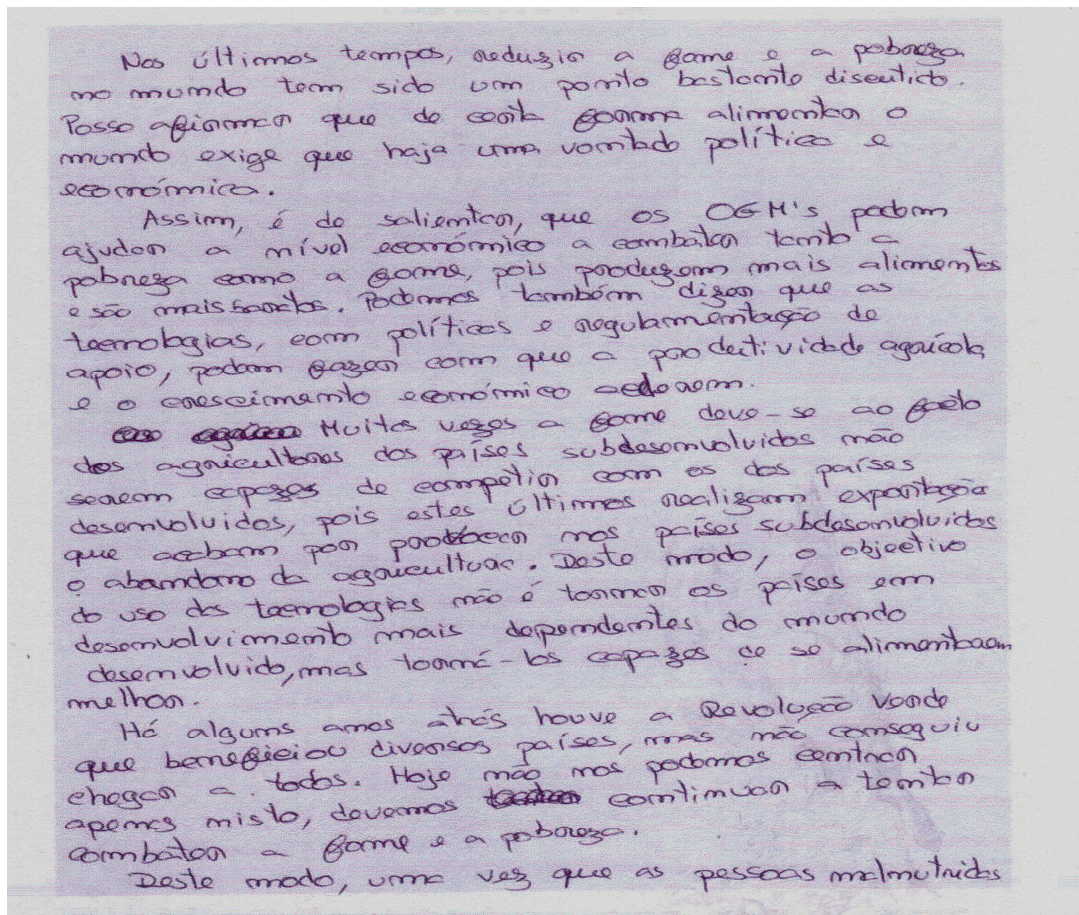 Nos últimos tempos, reduzir a fome e a pobreza
no mundo tem sido um ponto bastante discutido.
Posso afirmar que de certa forma alimentar o
mundo exige que haja uma vontade política e
económica.
Assim, é de salientar, que os OGM's podem
ajudar a nível económico a combater tanto a
pobreza como a fome, pois produzem mais alimentos
e são mais baratos. Podemos também dizer que as
tecnologias, com políticas e regulamentação de
apoio, podem fazer com que a produtividade agrícola
e o crescimento económico acelerem.
Muitas vezes a fome deve-se ao facto
dos agricultores dos países subdesenvolvidos não
serem capazes de competir com os dos países
desenvolvidos, pois estes últimos realizam exportação
que acabam por provocar nos países subdesenvolvidos
o abandono da agricultura. Deste modo, o objectivo
do uso das tecnologias não é tornar os países em
desenvolvimento mais dependentes do mundo
desenvolvido, mas torná-los capazes de se alimentarem
melhor.
Há alguns anos atrás houve a Revolução Verde
que beneficiou diversos países, mas não conseguiu
chegar a todos. Hoje não nos podemos centrar
apenas nisto, devemos continuar a tentar
combater a fome e a pobreza.
Deste modo, uma vez que as pessoas malnutridas